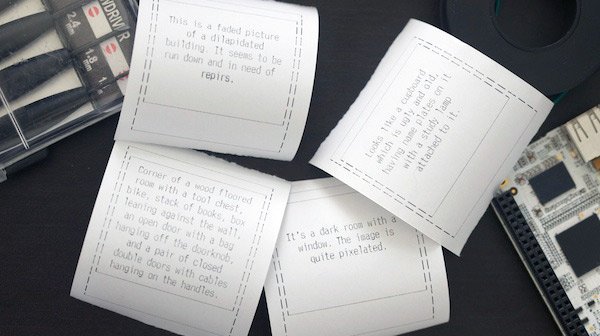 NDRIVER
2.4
1.8
This is a faded picture
of a dilapidated
building. It seems to be
run down and in need of
repirs.
Looks like a cupboard
which is ugly and old,
having name plates on it
with a study lamp
attached to it.
Corner of a wood floored
room with a tool chest,
bike, stack of books, box
leaning against the wall,
an open door with a bag
hanging off the doorknob,
and a pair of closed
double doors with cables
hanging on the handles.
It's a dark room with a
window. The image is
quite pixelated.